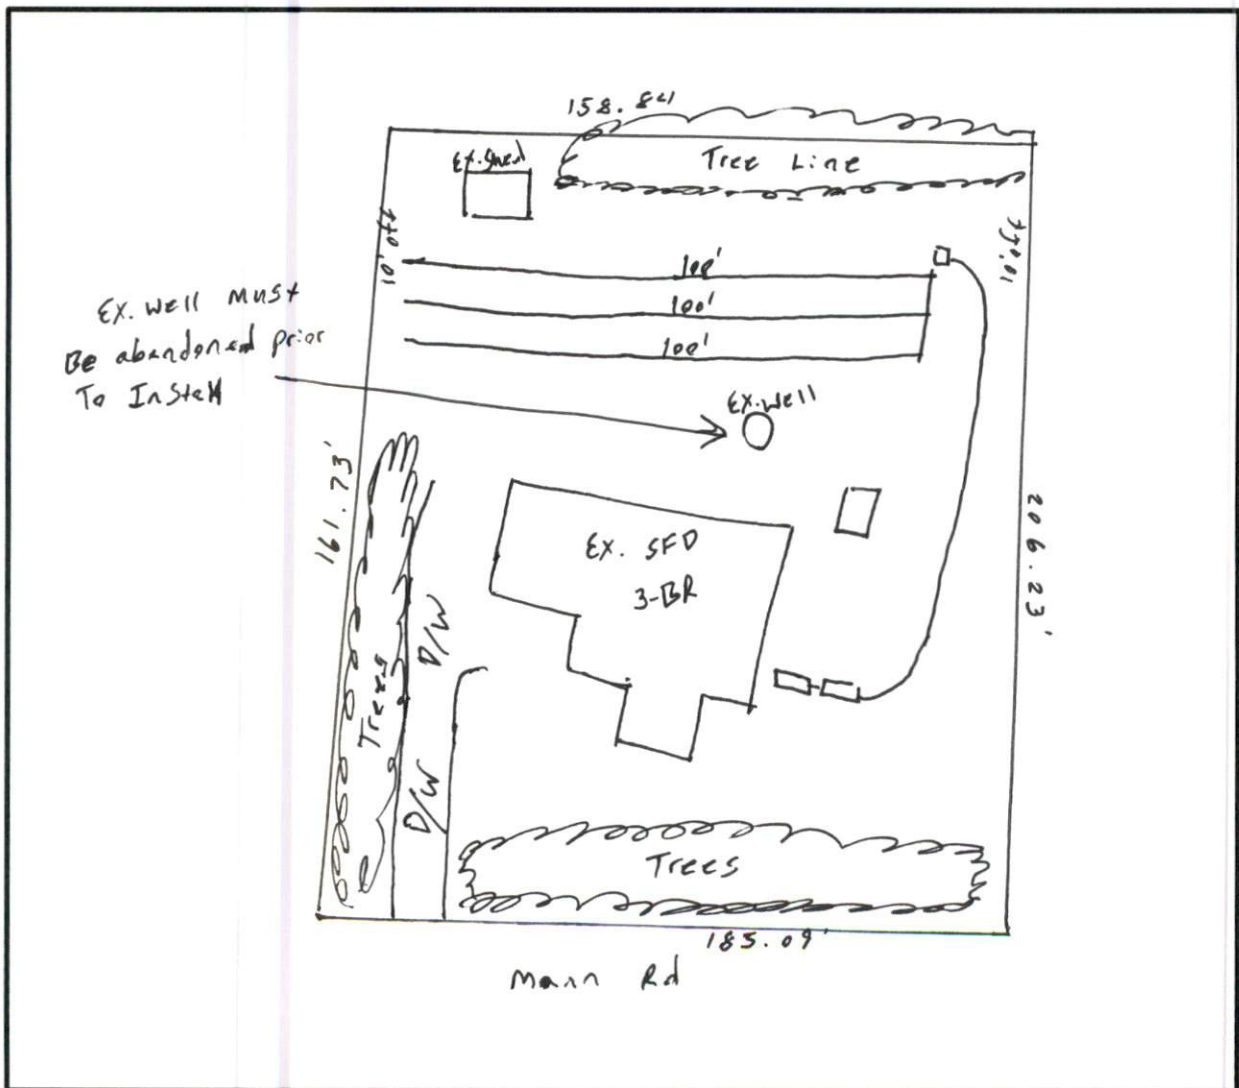 158.84
Ex. Shed
Tree Line
10' off
10' off
100'
100'
100'
Ex. Well Must
Be abandoned prior
To Install
Ex. Well
161.73'
206.23'
Ex. SFD
3-BR
D/W
Trees
D/W
Trees
185.09'
Mann Rd